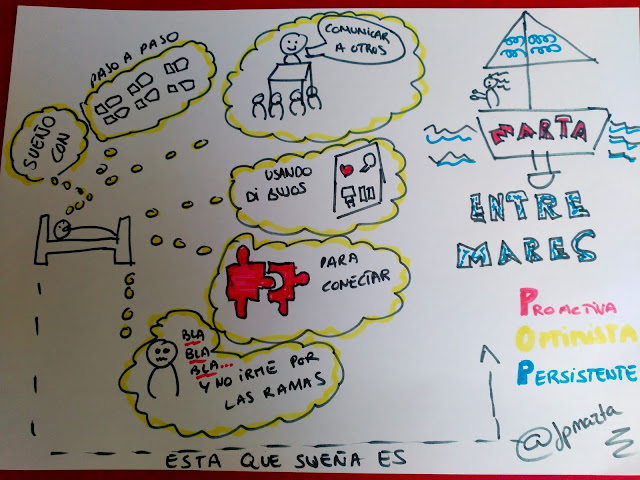 SUEÑO
CON
PASO A PASO
COMUNICAR
A OTROS
USANDO
DIBUJOS
PARA
CONECTAR
BLA
BLA
BLA...
Y NO IRME POR
LAS RAMAS
ESTA QUE SUEÑA ES
MARTA
ENTRE
MARES
PROACTIVA
OPTIMISTA
PERSISTENTE
@jpmarta